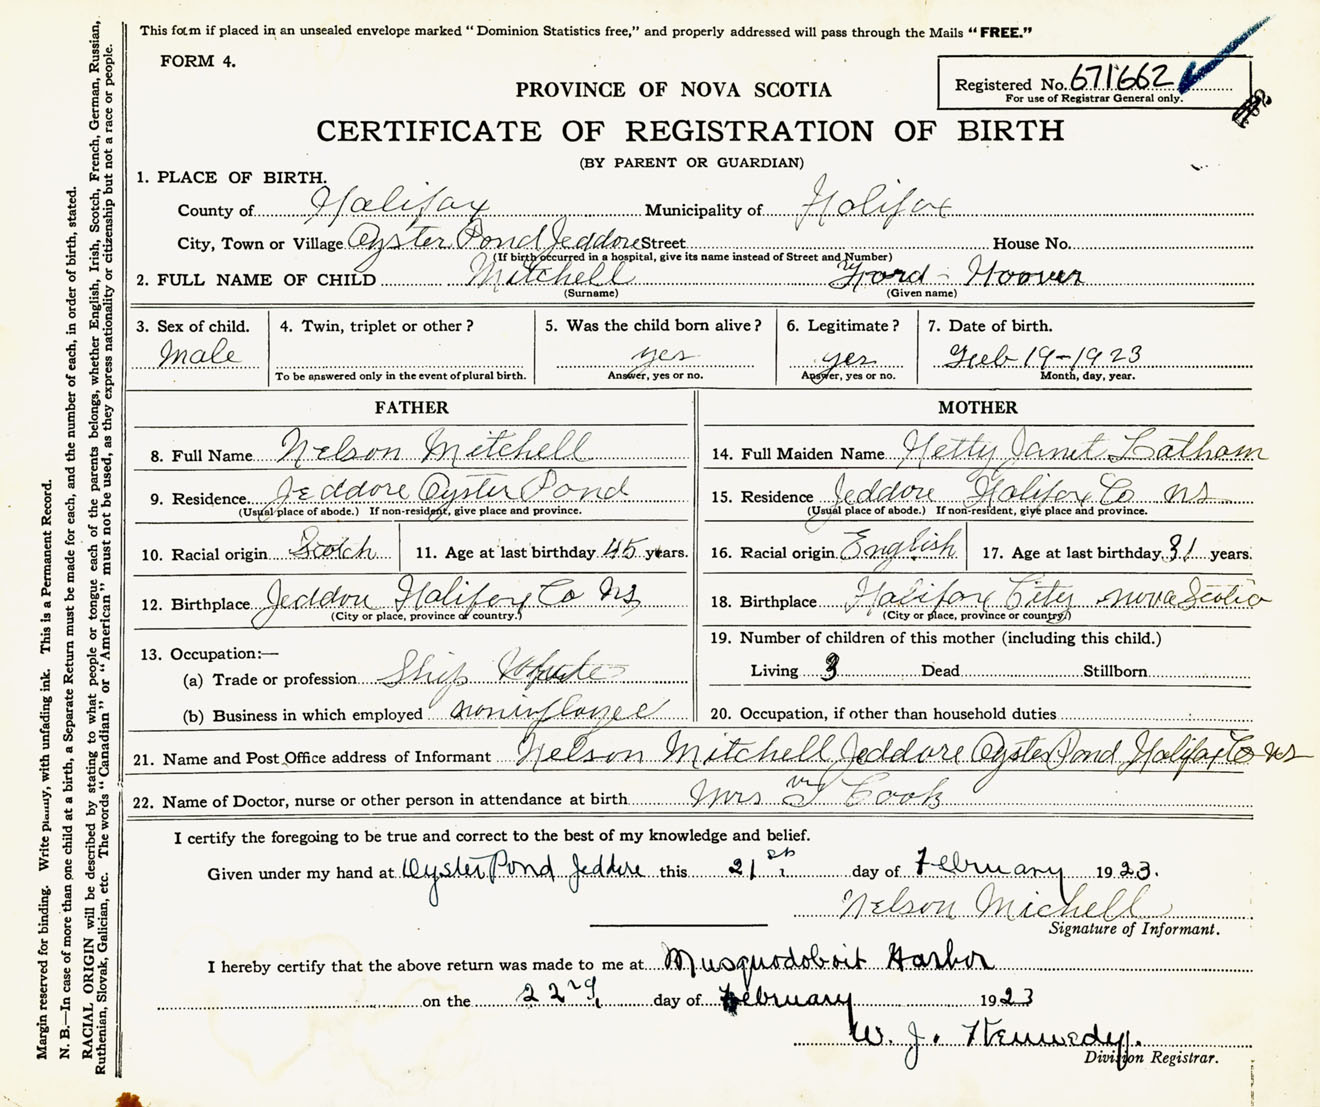 This form if placed in an unsealed envelope marked “Dominion Statistics free,” and properly addressed will pass through the Mails “FREE.”
FORM 4.
Registered No. 671662
For use of Registrar General only.
PROVINCE OF NOVA SCOTIA
CERTIFICATE OF REGISTRATION OF BIRTH
(BY PARENT OR GUARDIAN)
1. PLACE OF BIRTH.
County of Halifax Municipality of Halifax
City, Town or Village Oyster Pond Jeddore Street House No.
(If birth occurred in a hospital, give its name instead of Street and Number)
2. FULL NAME OF CHILD Mitchell Ford Hoover
(Surname) (Given name)
3. Sex of child. 4. Twin, triplet or other? 5. Was the child born alive? 6. Legitimate? 7. Date of birth.
Male yes yes Feb 19-1923
To be answered only in the event of plural birth. Answer, yes or no. Answer, yes or no. Month, day, year.
FATHER MOTHER
8. Full Name Nelson Mitchell 14. Full Maiden Name Hetty Janet Latham
9. Residence Jeddore Oyster Pond 15. Residence Jeddore Halifax Co NS
(Usual place of abode.) If non-resident, give place and province. (Usual place of abode.) If non-resident, give place and province.
10. Racial origin Scotch 11. Age at last birthday 45 years. 16. Racial origin English 17. Age at last birthday 31 years.
12. Birthplace Jeddore Halifax Co NS 18. Birthplace Halifax City Nova Scotia
(City or place, province or country.) (City or place, province or country)
19. Number of children of this mother (including this child.)
13. Occupation:—
Living 3 Dead Stillborn
(a) Trade or profession Ship
(b) Business in which employed 20. Occupation, if other than household duties
21. Name and Post Office address of Informant Nelson Mitchell Jeddore Oyster Pond Halifax Co NS
22. Name of Doctor, nurse or other person in attendance at birth Mrs Cook
I certify the foregoing to be true and correct to the best of my knowledge and belief.
Given under my hand at Oyster Pond Jeddore this 21 day of February 1923.
Nelson Michell
Signature of Informant.
I hereby certify that the above return was made to me at Musquodoboit Harbor
on the 22nd day of February 1923
W. J. Kennedy.
Division Registrar.
Margin reserved for binding. Write plainly, with unfading ink. This is a Permanent Record.
N. B.—In case of more than one child at a birth, a Separate Return must be made for each, and the number of each, in order of birth, stated.
RACIAL ORIGIN will be described by stating to what people or tongue each of the parents belongs, whether English, Irish, Scotch, French, German, Russian,
Ruthenian, Slovak, Galician, etc. The words “Canadian” or “American” must not be used, as they express nationality or citizenship but not a race or people.